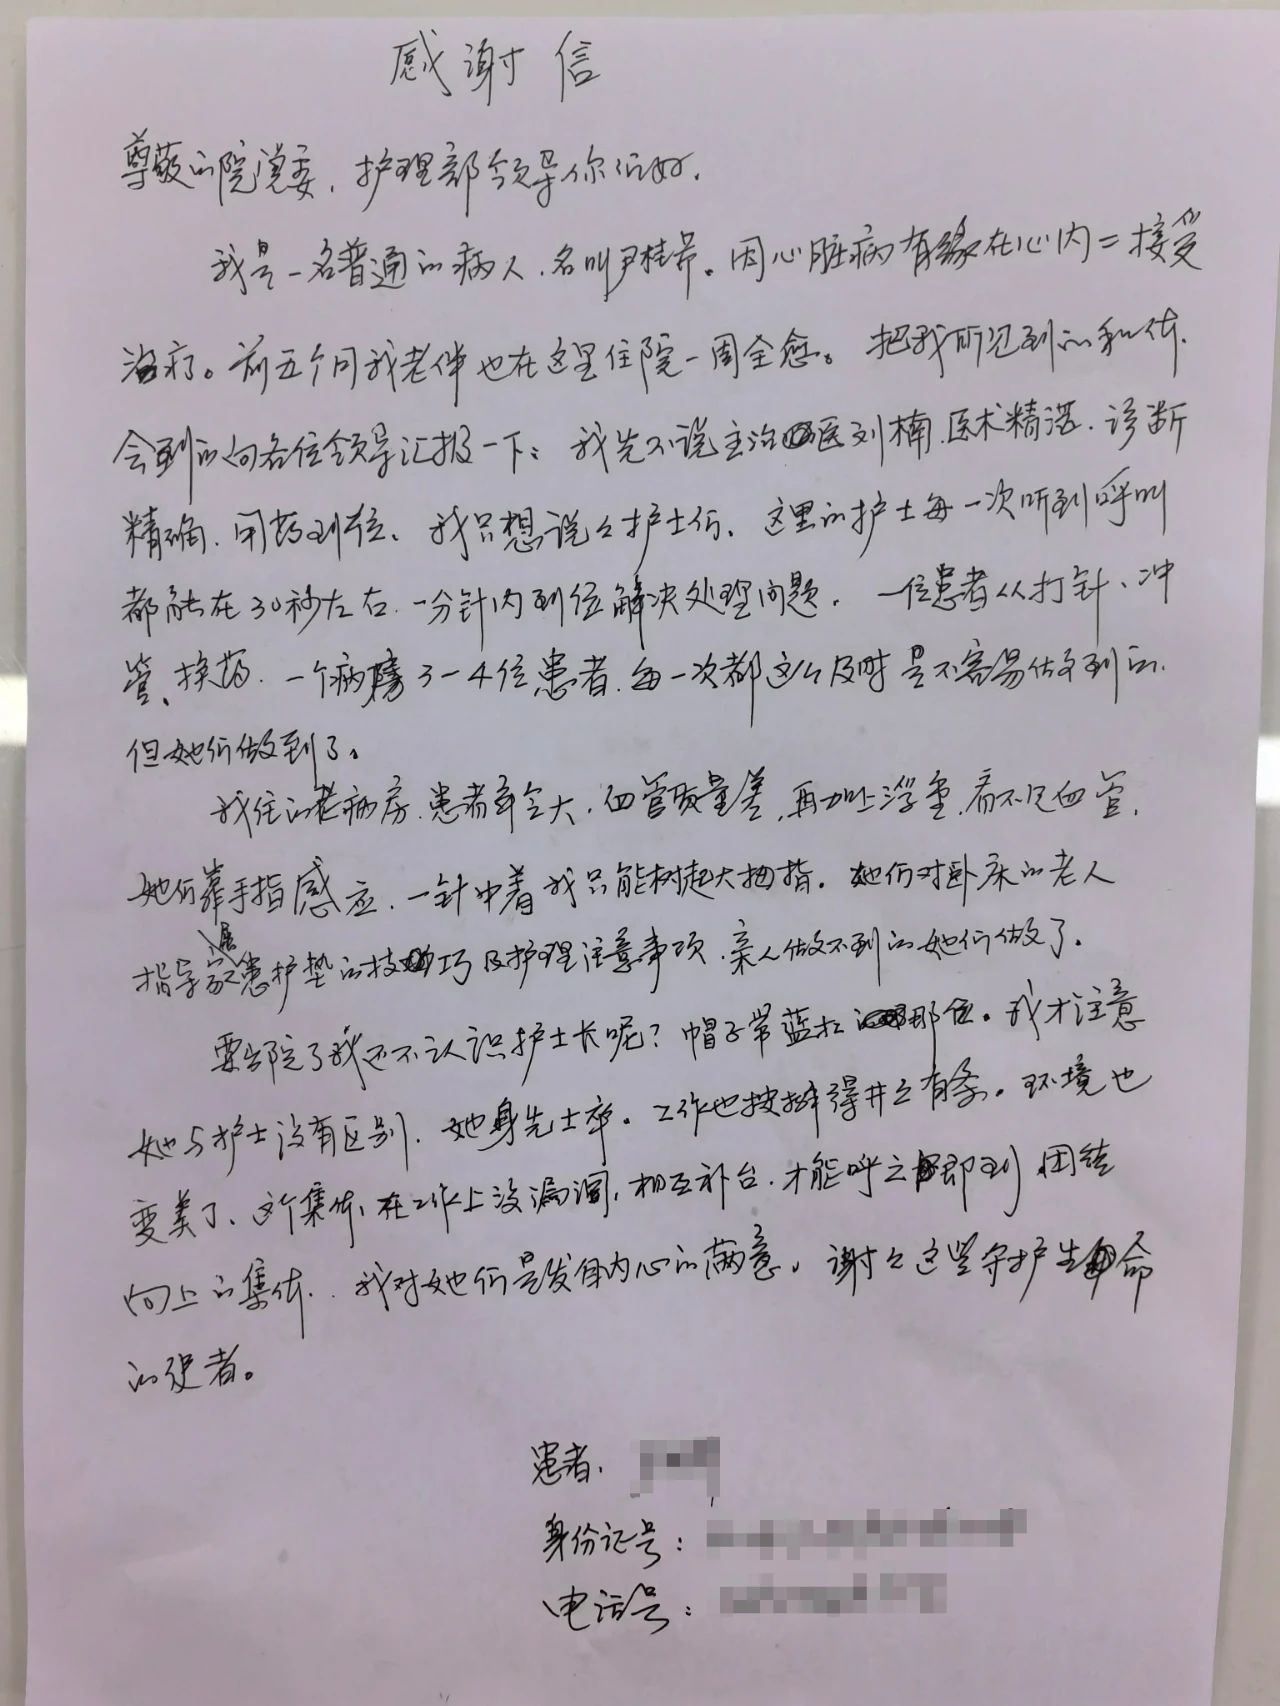 感谢信
尊敬的院党委，护理部领导你们好，
我是一名普通的病人，名叫尹桂芹。因心脏病有缘在心内二接受
治疗。前五个月我老伴也在这里住院一周全愈。把我所见到的和体
会到的向各位领导汇报一下：我先不说主治医刘楠，医术精湛，诊断
精确，用药到位，我只想说说护士们，这里的护士每一次听到呼叫
都能在30秒左右，一分针内到位解决处理问题，一位患者从打针、冲
管、换药，一个病房3-4位患者，每一次都这么及时是不容易做到的，
但她们做到了。
我住的老病房，患者年令大，血管质量差，再加上浮重，看不见血管，
她们靠手指感应，一针中着我只能树起大拇指。她们对卧床的老人
指导家属患护垫的技巧及护理注意事项，亲人做不到的她们做了。
要出院了我还不认识护士长呢？帽子带蓝杠那位。我才注意
她与护士没有区别，她身先士卒。工作也按排得井井有条。环境也
变美了、这个集体，在工作上没漏洞，相互补台，才能呼之即到，团结
向上的集体，我对她们是发自内心的满意，谢谢这些守护生命
的使者。
患者，
身份证号：
电话号：